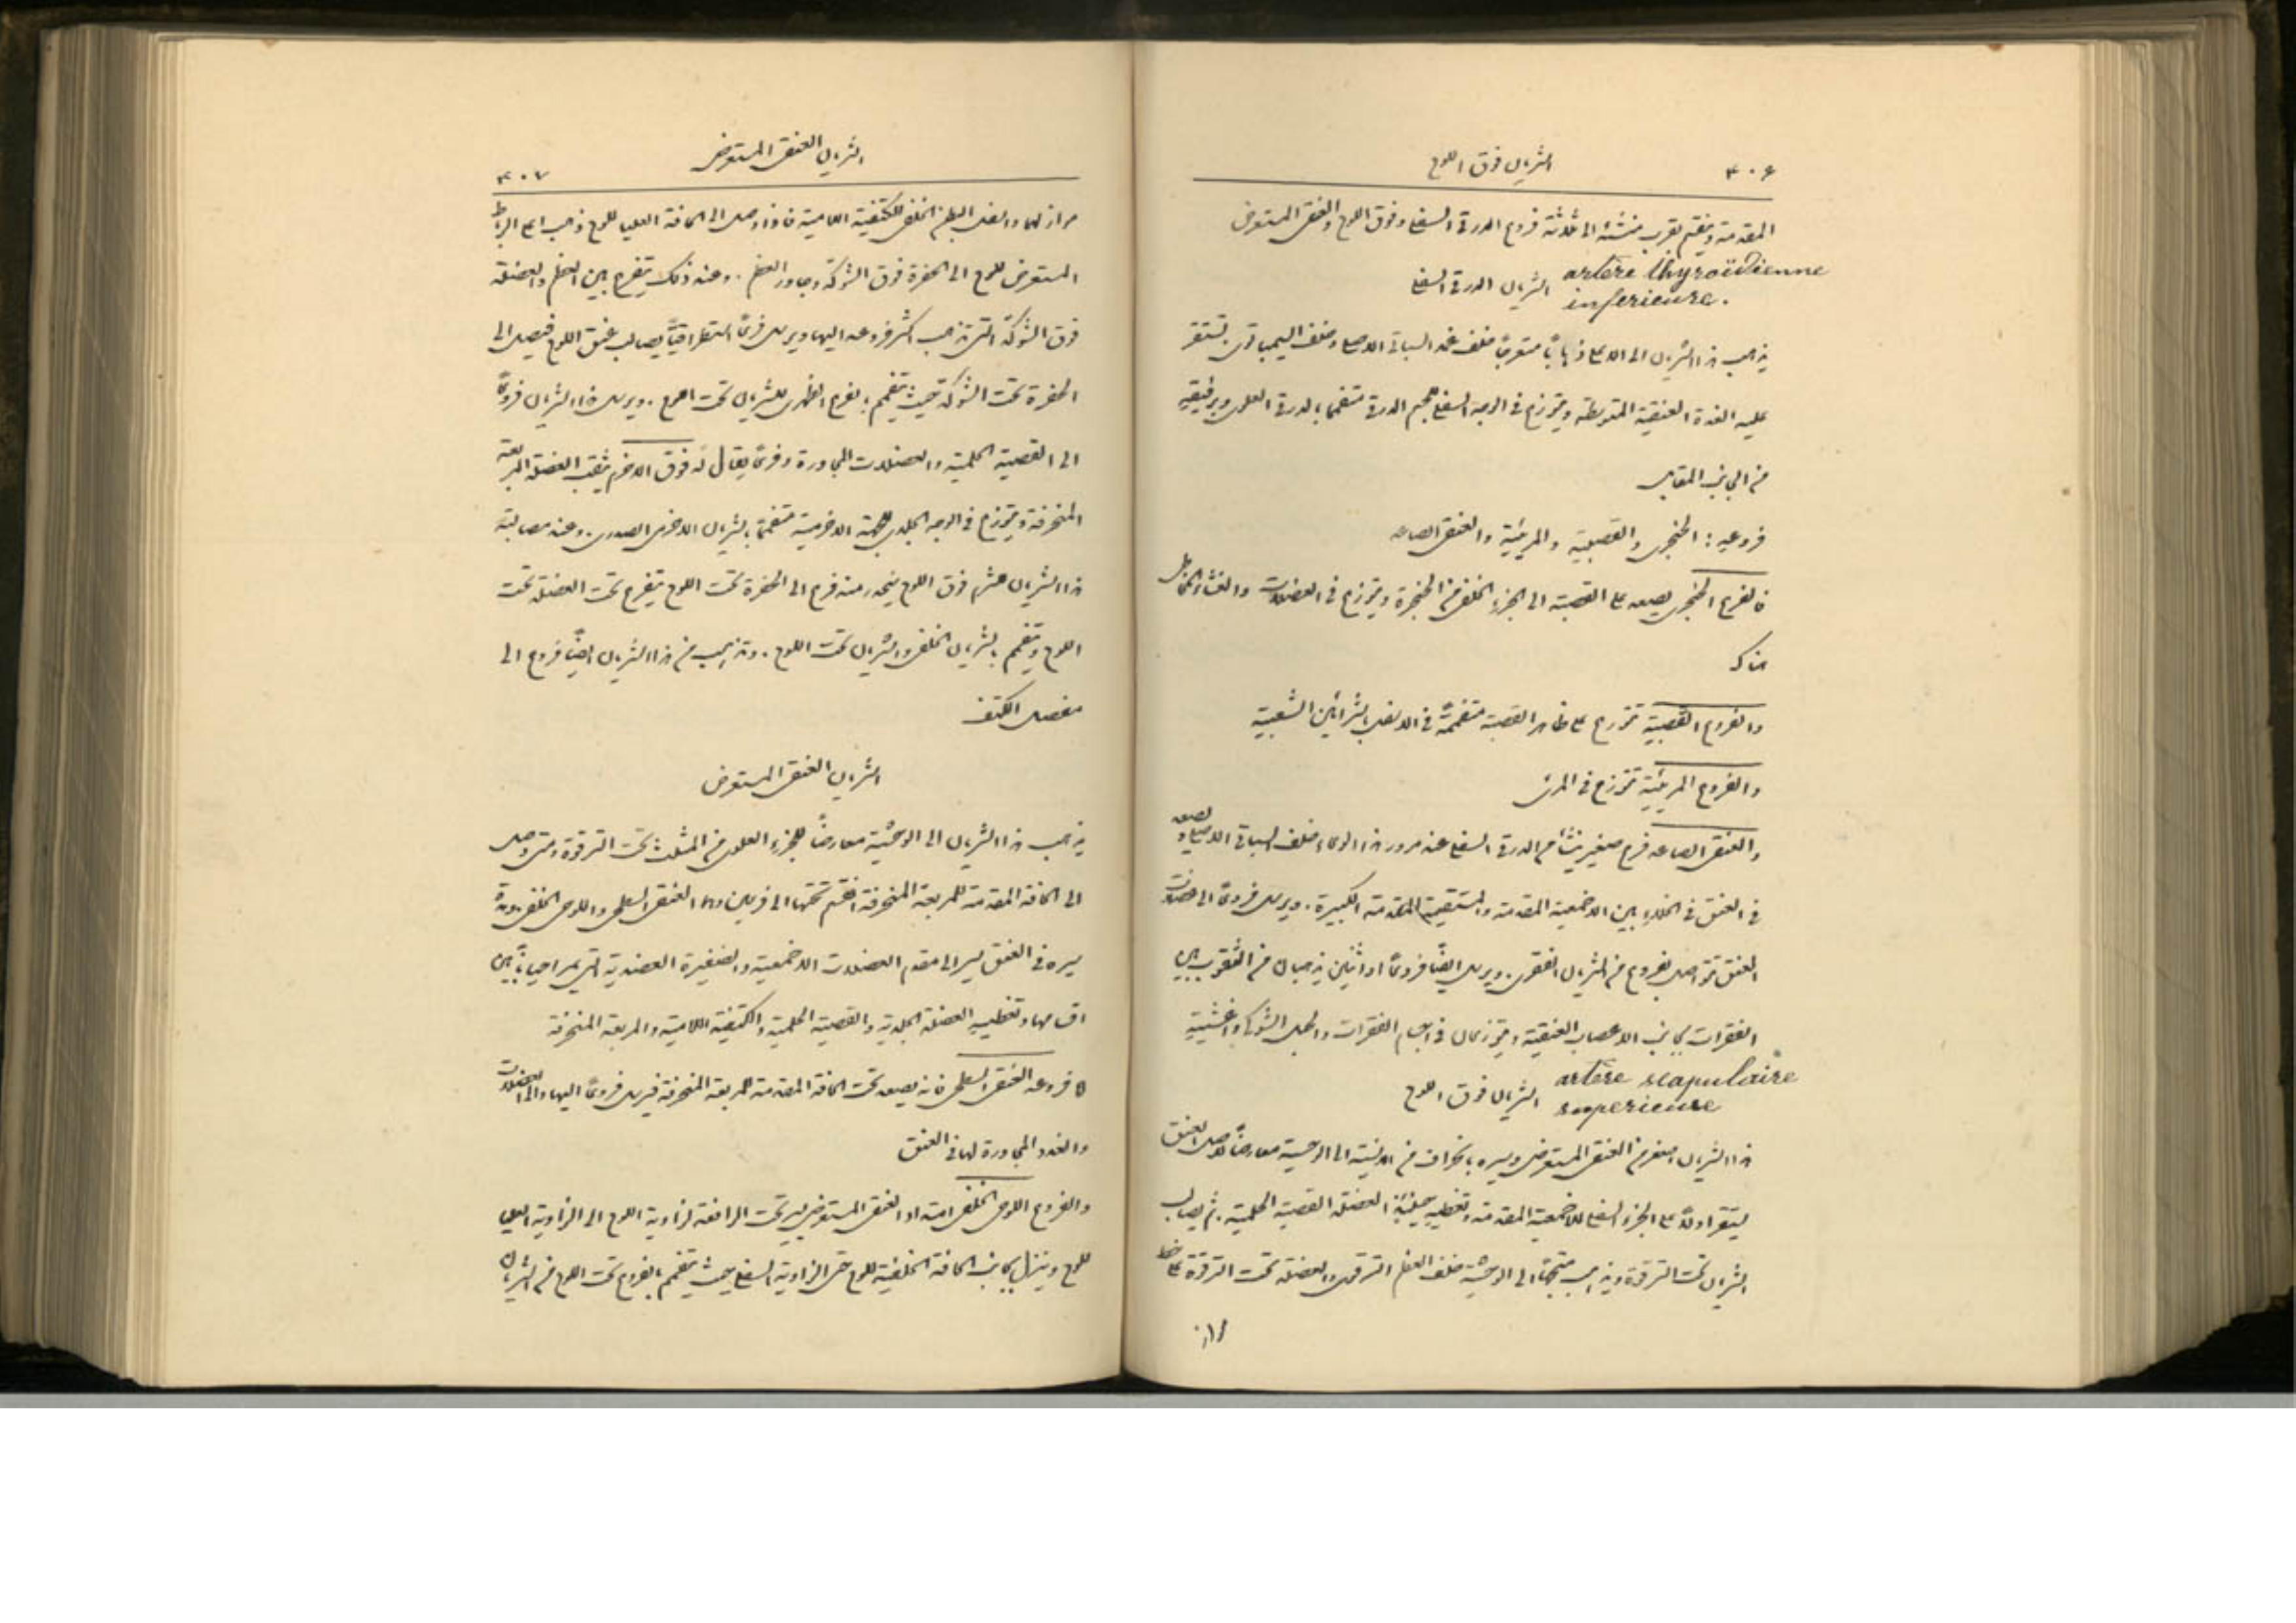 ٤٠٦ الشريان فوق اللوح
المقدمة وينقسم بقرب منشئه الى ثلاثة فروع الدرقي السفلي وفوق اللوح والعنقي المستعرض
artère thyroïdienne inferieure. الشريان الدرقي السفلي
يذهب هذا الشريان الى الاعلى ذهابًا متعرجًا خلف غمد السباتي الاصلي وخلف السيمباتوي تستقر
عليه الغدة العنقية المتوسطة ويتوزع في الوجه السفلي للجسم الدرقي متفممًا بالدرقي العلوي وبرفيقه
من الجانب المقابل
فروعه: الحنجري والقصبية والمريئية والعنقي الصاعد
فالفرع الحنجري يصعد على القصبة الى الجزء الخلفي من الحنجرة ويتوزع في العضلات والغشاء المخاطي
هناك
والفروع القصبية تتوزع على ظاهر القصبة متفممة في الاسفل بالشرائين الشعبية
والفروع المريئية تتوزع في المرئ
والعنقي الصاعد فرع صغير ينشأ من الدرقي السفلي عند مرور هذا الوعاء خلف السباتي الاصلي ويصعد
في العنق في الخلاء بين الاخمعية المقدمة والمستقيمة المقدمة الكبيرة. ويرسل فروعًا الى عضلات
العنق تتواصل بفروع من الشريان الفقري. ويرسل ايضًا فرعًا او اثنين يذهبان من الثقوب بين
الفقرات بجانب الاعصاب العنقية ويتوزعان في اجسام الفقرات والحبل الشوكي واغشيته
artère scapulaire superieure الشريان فوق اللوح
هذا الشريان اصغر من العنقي المستعرض ويسير بانحراف من الانسية الى الوحشية معارضًا لاصل العنق
يستقر اولًا على الجزء السفلي للاخمعية المقدمة وتغطيه حينئذ العضلة القصية الحلمية. ثم يصالب
الشريان تحت الترقوة ويذهب متجهًا الى الوحشية خلف العظم الترقوي والعضلة تحت الترقوة على خط
الشريان العنقي المستعرض ٤٠٧
موازٍ لهما والى البطن الخلفي للكتفية اللامية فاذا وصل الى الحافة العليا للوح ذهب اعلى الرباط
المستعرض للوح الى الحفرة فوق الشوكة وجاور العظم. وعند ذلك يتفرع بين العظم والعضلة
فوق الشوكة التي تذهب اكثر فروعه اليها ويرسل فرعًا استطراقيًا يصالب عنق اللوح فيصل الى
الحفرة تحت الشوكة حيث يتفمم بالفرع الظهري للشريان تحت اللوح. ويرسل هذا الشريان فروعًا
الى القصية الحلمية والعضلات المجاورة وفرعًا يقال له فوق الاخرم يثقب العضلة المربعة
المنحرفة ويتوزع في الوجه الجلدي للقمة الاخرمية متفممًا بالشريان الاخرمي الصدري. وعند مصالبته
هذا الشريان عشم فوق اللوح ينحدر منه فرع الى الحفرة تحت اللوح يتفرع تحت العضلة تحت
اللوح ويتفمم بالشريان الخلفي والشريان تحت اللوح. وتذهب من هذا الشريان ايضًا فروع الى
مفصل الكتف
الشريان العنقي المستعرض
يذهب هذا الشريان الى الوحشية معارضًا للجزء العلوي من المثلث تحت الترقوة ومتى وصل
الى الحافة المقدمة للمربعة المنحرفة انقسم تحتها الى فرعين وهما العنقي السطحي واللوحي الخلفي
سيره في العنق يسير الى مقدم العضلات الاخمعية والضفيرة العضدية التي يمر احيانًا بين
اقسامها وتغطيه العضلة الجلدية والقصية الحلمية والكتفية اللامية والمربعة المنحرفة
فروعه العنقي السطحي فانه يصعد تحت الحافة المقدمة للمربعة المنحرفة فيرسل فروعًا اليها والى العضلات
والغدد المجاورة لها في العنق
والفرع اللوحي الخلفي امتداد العنقي المستعرض يسير تحت الرافعة لزاوية اللوح الى الزاوية العليا
للوح وينزل بجانب الحافة الخلفية للوح حتى الزاوية السفلى حيث يتفمم بالفروع تحت اللوح من الشريان